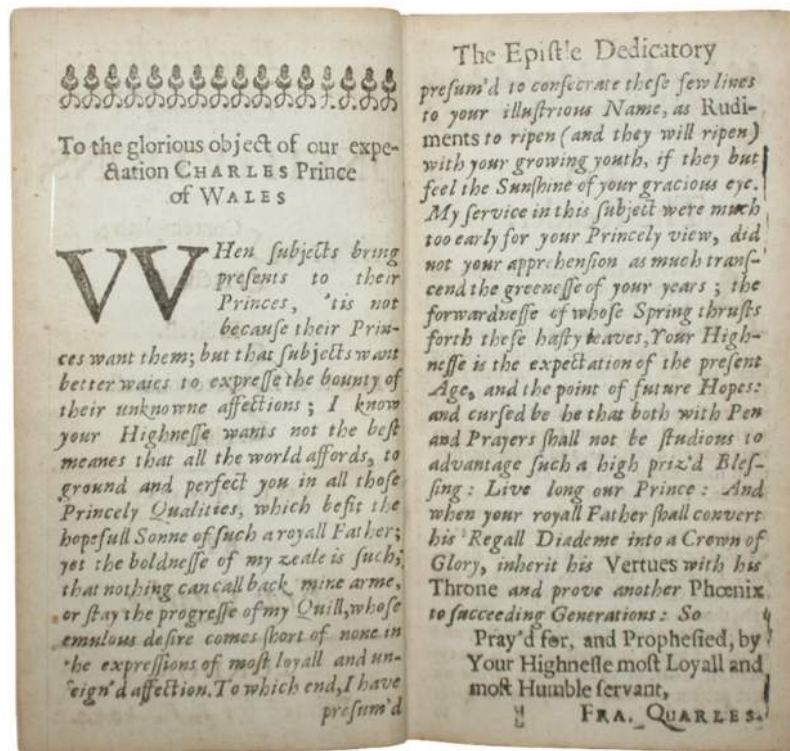 To the glorious object of our expe-
ctation CHARLES Prince
of WALES
WHen subjects bring
presents to their
Princes, 'tis not
because their Prin-
ces want them; but that subjects want
better waies to expresse the bounty of
their unknowne affections; I know
your Highnesse wants not the best
meanes that all the world affords, to
ground and perfect you in all those
Princely Qualities, which befit the
hopefull Sonne of such a royall Father;
yet the boldnesse of my zeale is such,
that nothing can call back mine arme,
or stay the progresse of my Quill, whose
emulous desire comes short of none in
the expressions of most loyall and un-
feign'd affection. To which end, I have
presum'd
The Epistle Dedicatory
presum'd to consecrate these few lines
to your illustrious Name, as Rudi-
ments to ripen (and they will ripen)
with your growing youth, if they but
feel the Sunshine of your gracious eye.
My service in this subject were much
too early for your Princely view, did
not your apprehension as much trans-
cend the greenesse of your years; the
forwardnesse of whose Spring thrusts
forth these hasty leaves, Your High-
nesse is the expectation of the present
Age, and the point of future Hopes:
and cursed be he that both with Pen
and Prayers shall not be studious to
advantage such a high priz'd Bles-
sing: Live long our Prince: And
when your royall Father shall convert
his Regall Diademe into a Crown of
Glory, inherit his Vertues with his
Throne and prove another Phœnix
to succeeding Generations: So
Pray'd for, and Prophesied, by
Your Highnesse most Loyall and
most Humble servant,
FRA. QUARLES.